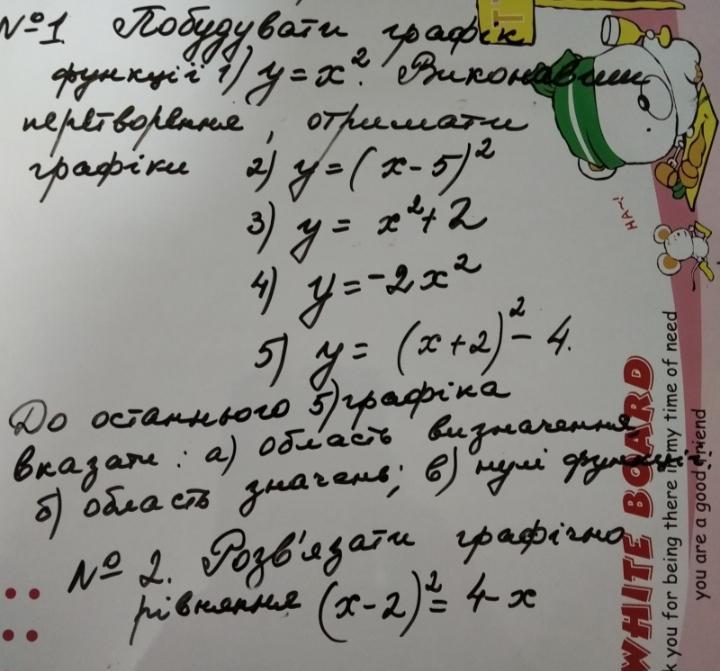 №1 Побудувати графік
функції 1) y = x². Виконавши
перетворення, отримати
графіки 2) y = (x - 5)²
3) y = x² + 2
4) y = -2x²
5) y = (x + 2)² - 4.
До останнього 5) графіка
вказати: а) область визначення
б) область значень; в) нулі функції.
№ 2. Розв'язати графічно
рівняння (x - 2)² = 4 - x
НАМ!
WHITE BOARD
k you for being there in my time of need
you are a good friend